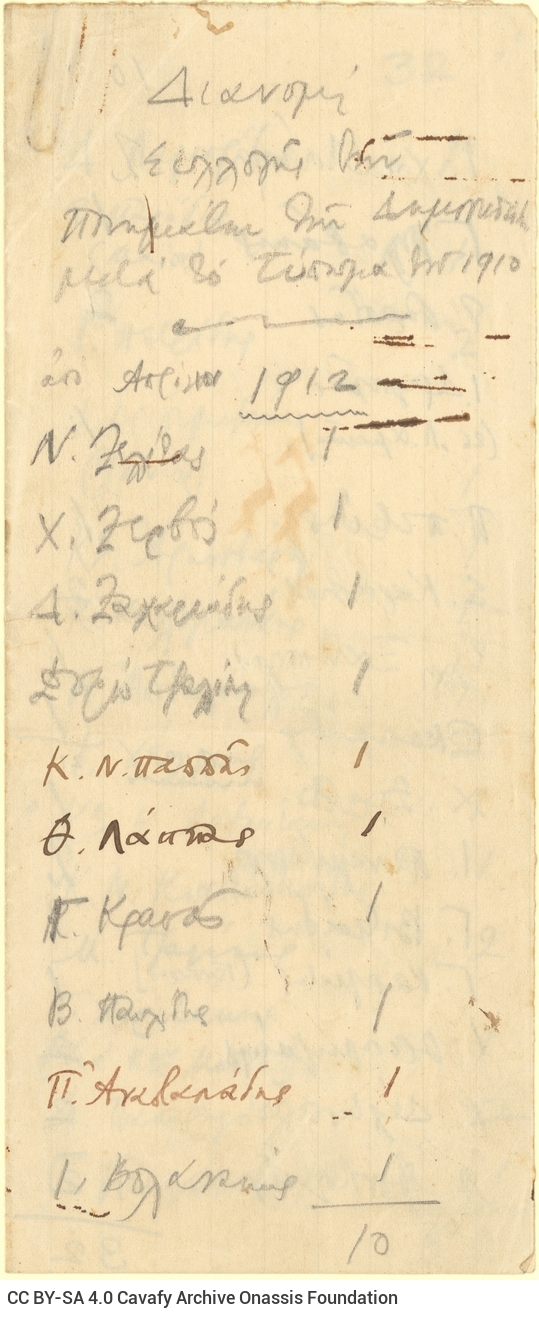 Διανομή
Συλλογής των
Ποιημάτων των Δημοσιευθ.
μετά το Τύπωμα του 1910
από Απρίλιον 1912
Ν. Ζελίτας 1
Χ. Ζερβός 1
Δ. Ζαχαριάδης 1
1
Κ. Ν. Παππάς 1
Θ. Λάππας 1
Κρασάς 1
Β. Παυλίδης 1
Π. Αναστασιάδης 1
Ι. Βολανάκης 1
10
CC BY-SA 4.0 Cavafy Archive Onassis Foundation